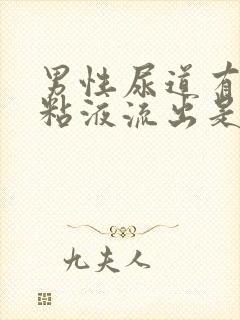 男性尿道有
粘液流出是
九夫人